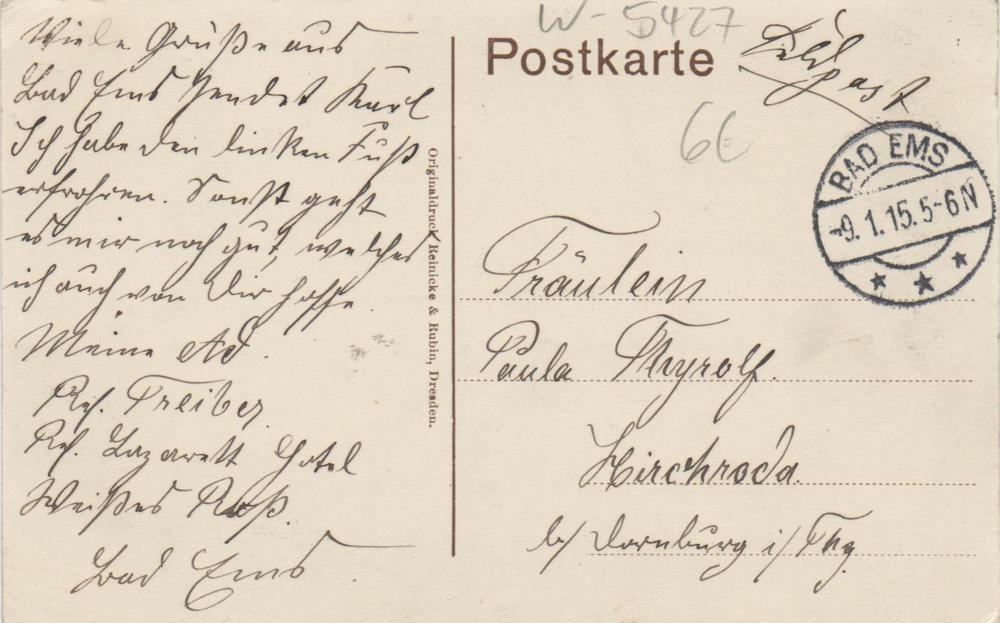 Viele Grüße aus
Bad Ems sendet Karl
Ich habe den linken Fuß
erfrohren. Sonst geht
es mir noch gut, welches
ich auch von Dir hoffe.
Meine Ad.
Res. Treiber
Res. Lazarett Hotel
Weißes Roß.
Bad Ems
Originaldruck Reinicke & Rubin, Dresden.
W-5427
Postkarte
Feldpost
6E
BAD EMS
-9.1.15.5-6N
Fräulein
Paula Thyrolf.
Hirchroda.
b/ Dornburg i/ Thg.